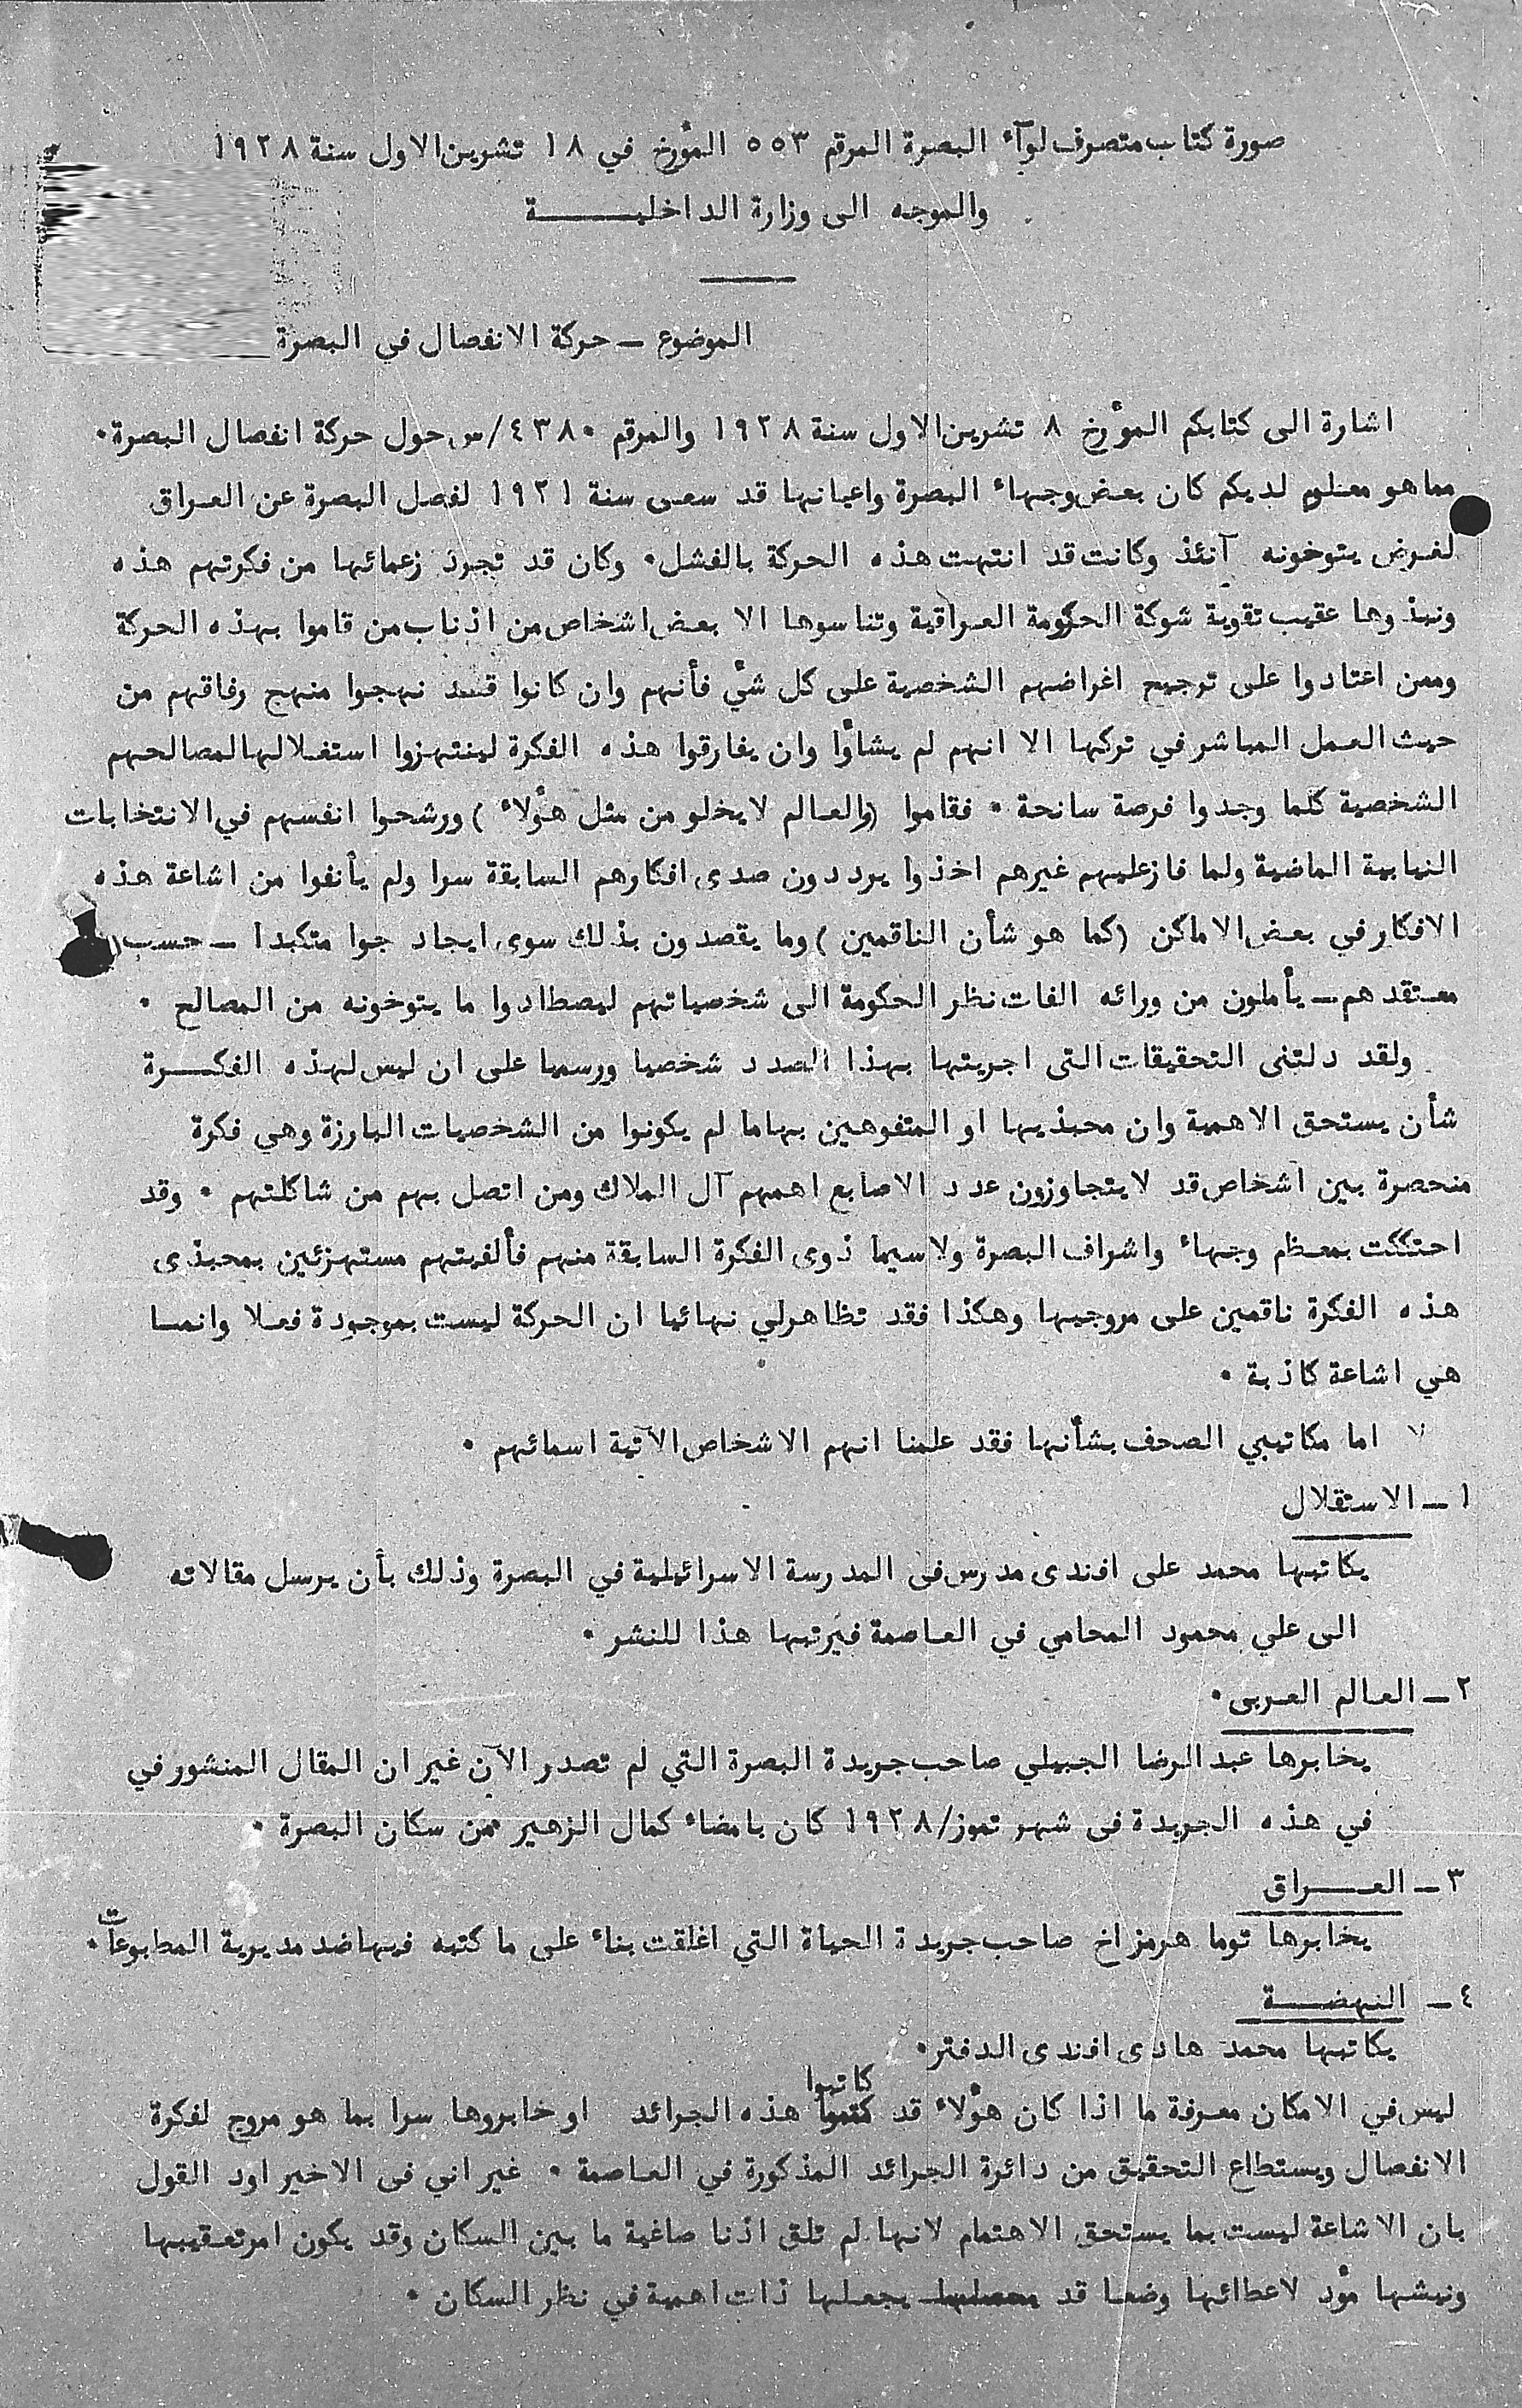 صورة كتاب متصرف لوآء البصرة المرقم ٥٥٣ المؤرخ في ١٨ تشرين الاول سنة ١٩٢٨
والموجه الى وزارة الداخليــــــة
الموضوع – حركة الانفصال في البصرة
اشارة الى كتابكم المؤرخ ٨ تشرين الاول سنة ١٩٢٨ والمرقم ٤٣٨٠/س حول حركة انفصال البصرة٠
مما هو معلوم لديكم كان بعض وجهاء البصرة واعيانها قد سعى سنة ١٩٢١ لفصل البصرة عن العراق
لغرض يتوخونه آنئذ وكانت قد انتهت هذه الحركة بالفشل٠ وكان قد تجرد زعمائها من فكرتهم هذه
ونبذوها عقيب تقوية شوكة الحكومة العراقية وتناسوها الا بعض اشخاص من اذناب من قاموا بهذه الحركة
وممن اعتادوا على ترجيح اغراضهم الشخصية على كل شئ فأنهم وان كانوا قــد نهجوا منهج رفاقهم من
حيث العمل المباشر في تركها الا انهم لم يشاؤا وان يفارقوا هذه الفكرة لينتهزوا استغلالها لمصالحهم
الشخصية كلما وجدوا فرصة سانحة ٠ فقاموا (والعالم لا يخلو من مثل هؤلاء ) ورشحوا انفسهم في الانتخابات
النيابية الماضية ولما فاز عليهم غيرهم اخذوا يرددون صدى افكارهم السابقة سرا ولم يأنفوا من اشاعة هذه
الافكار في بعض الاماكن (كما هو شأن الناقمين ) وما يقصدون بذلك سوى ايجاد جوا متكبدا – حسب
معتقدهم – يأملون من ورائه الفات نظر الحكومة الى شخصياتهم ليصطادوا ما يتوخونه من المصالح ٠
ولقد دلتنى التحقيقات التى اجريتها بهذا الصدد شخصيا ورسميا على ان ليس لهذه الفكــــرة
شأن يستحق الاهمية وان محبذيها او المتفوهين بها ما لم يكونوا من الشخصيات البارزة وهي فكرة
منحصرة بين اشخاص قد لا يتجاوزون عدد الاصابع اهمهم آل الملاك ومن اتصل بهم من شاكلتهم ٠ وقد
احتككت بمعظم وجهاء واشراف البصرة ولاسيما ذوى الفكرة السابقة منهم فألفيتهم مستهزئين بمحبذى
هذه الفكرة ناقمين على مروجيها وهكذا فقد تظاهر لي نهائيا ان الحركة ليست بموجودة فعلا وانمـا
هي اشاعة كاذبة ٠
اما مكاتيبي الصحف بشأنها فقد علمنا انهم الاشخاص الآتية اسمائهم ٠
١ – الاستقلال
يكاتبها محمد على افندى مدرس فى المدرسة الاسرائيلية في البصرة وذلك بأن يرسل مقالاته
الى علي محمود المحامي في العاصمة فيرتبها هذا للنشر ٠
٢ – العالم العربى٠
يخابرها عبد الرضا الجبيلي صاحب جريدة البصرة التي لم تصدر الآن غير ان المقال المنشور في
في هذه الجريدة فى شهر تموز/١٩٢٨ كان بامضاء كمال الزهير ممن سكان البصرة ٠
٣ – العــــراق
يخابرها توما هرمز اخ صاحب جريدة الحياة التي اغلقت بناء على ما كتبه فيها ضد مديرية المطبوعات ٠
٤ – النهضــــة
يكاتبها محمد هادى افندى الدفتر٠
ليس في الامكان معرفة ما اذا كان هؤلاء قد كاتبوا هذه الجرائد او خابروها سرا بما هو مروج لفكرة
الانفصال ويستطاع التحقيق من دائرة الجرائد المذكورة في العاصمة ٠ غير اني فى الاخير اود القول
بان الاشاعة ليست بما يستحق الاهتمام لانها لم تلق اذنا صاغية ما بين السكان وقد يكون امر تعقيبها
ونبشها مؤد لاعطائها وضعا قد يجعلها ذات اهمية في نظر السكان ٠